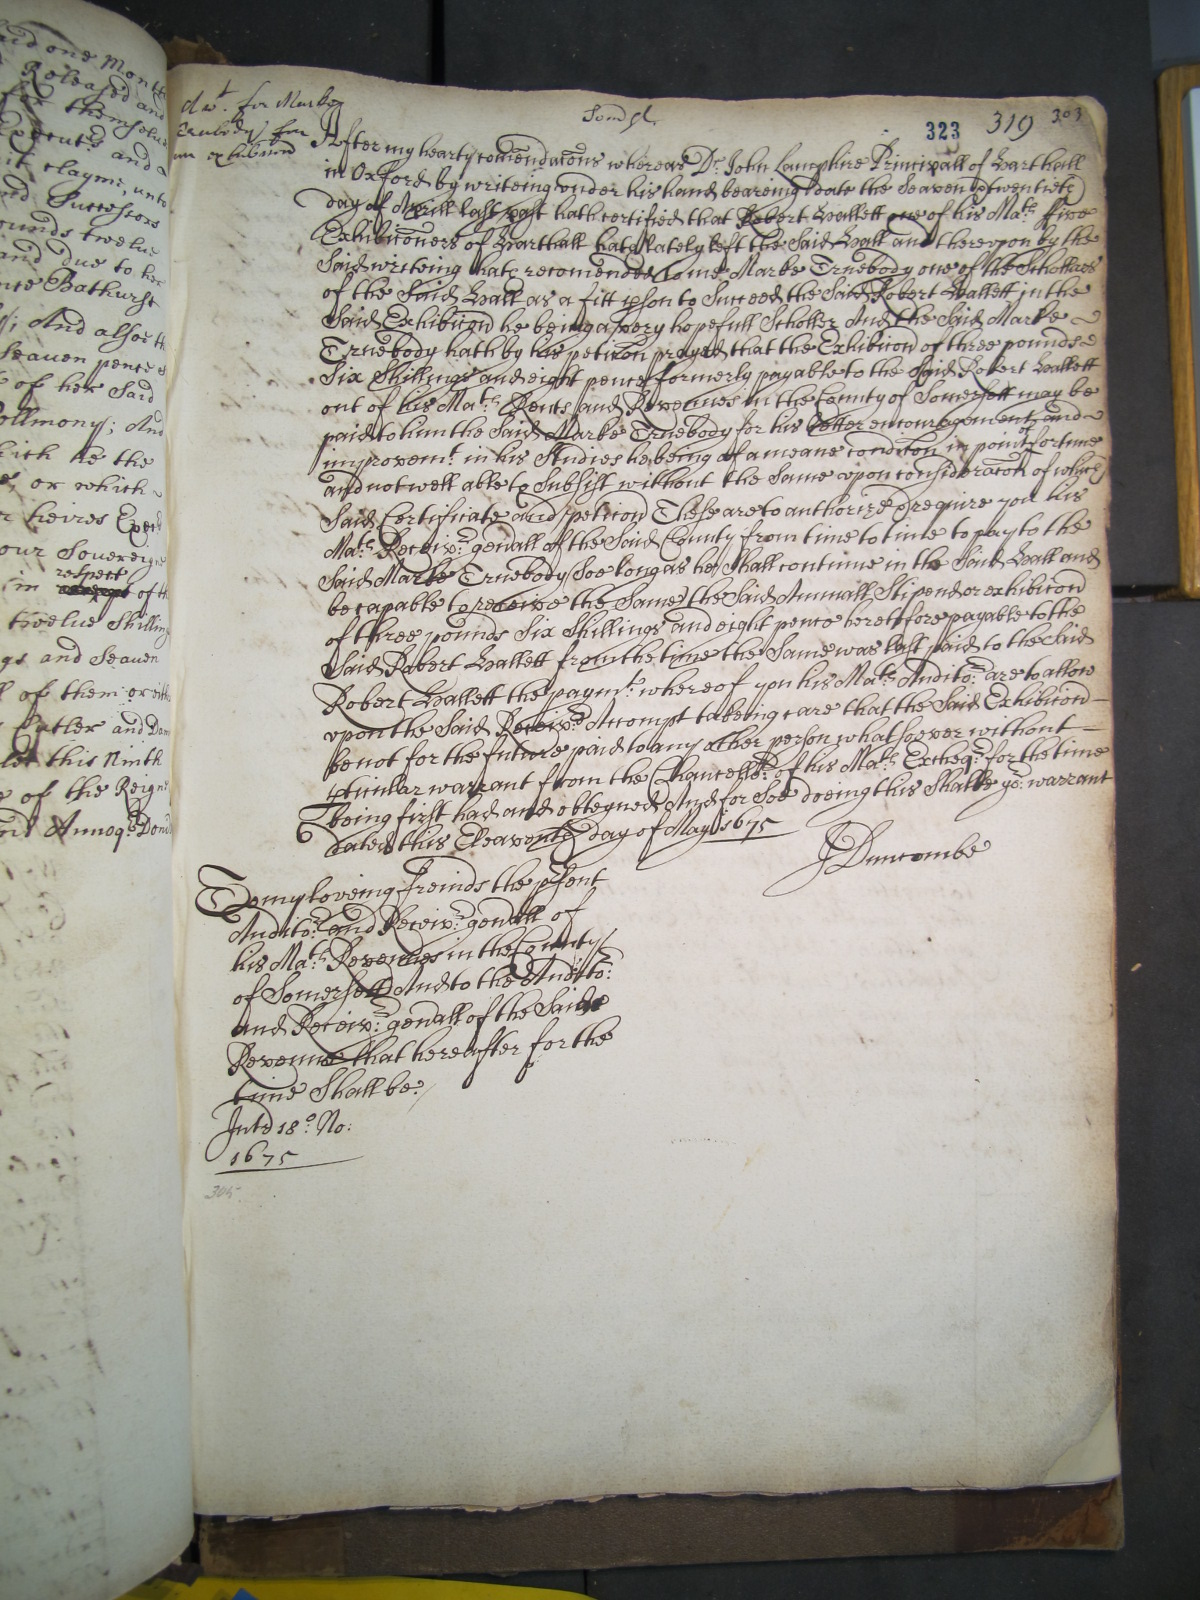 said one Month
Released and
for themselves
Execut.rs and
it clayme, unto
nd Successors
ounds twelve
and due to her
nte Bathurst
; And alsoe th
seaven pence
of her said
ollmony; And
hich he the
or which
r heires Exec
our Sovereigne
respect
in of th
twelve Shilling
gs and Seaven
ll of them or eith
Cutler and Dam
let this Ninth
e of the Reigne
nd Annoq.e Domi
323 319 303
Somst.
d wt. for Marke
Truebody for
an exhibicon
After my hearty comendacons whereas Dr. John Lamphire Principall of Harthall
in Oxford by writeing under his hand beareing date the Seaven & twentieth
day of Aprill last past hath certified that Robert Hallett one of his Mats. five
Exhibiconers of Harthall hath lately left the Said Hall and thereupon by the
Said writeing hath recomended to me Marke Truebody one of the Schollars
of the Said Hall as a fitt pson to Succeed the Said Robert Hallett in the
Said Exhibicon he being a very hopefull Scholler And the Said Marke
Truebody hath by his peticon prayed that the Exhibicon of three pounds
Six Shillings and eight pence formerly payable to the Said Robert Hallett
out of his Mats. Rents and Revenues in the County of Somersett may be
paid to him the Said Marke Truebody for his better encouragement and
improvemt. in his Studies he being of a meane condicon in point of fortune
and not well able to Subsist without the Same upon consideracon of which
Said Certificate and peticon These are to authorize & require you his
Mats. Receivr. genall of the Said County from time to time to pay to the
Said Marke Truebody Soe long as he Shall continue in the Said Hall and
be capable to receive the Same the Said Annuall Stipend or exhibicon
of three pounds Six Shillings and eight pence heretofore payable to the
Said Robert Hallett from the time the Same was last paid to the Said
Robert Hallett the paymt. whereof you his Mats. Auditor. are to allow
upon the Said Receivrs. Accompt takeing care that the Said Exhibicon
be not for the future paid to any other person whatsoever without
pticular warrant from the Chancellr. of his Mats. Excheqr. for the time
being first had and obteyned And for Soe doeing this Shalbe yor. warrant
dated this Eleaventh day of May 1675
J Duncombe
To my loveing freinds the psent
Auditor. and Receivr. genall of
his Mats. Revenues in the County
of Somersett And to the Auditor.
and Receivr. genall of the Said
Revenue that hereafter for the
time Shall be.
Intd 18o. No:
1675
305